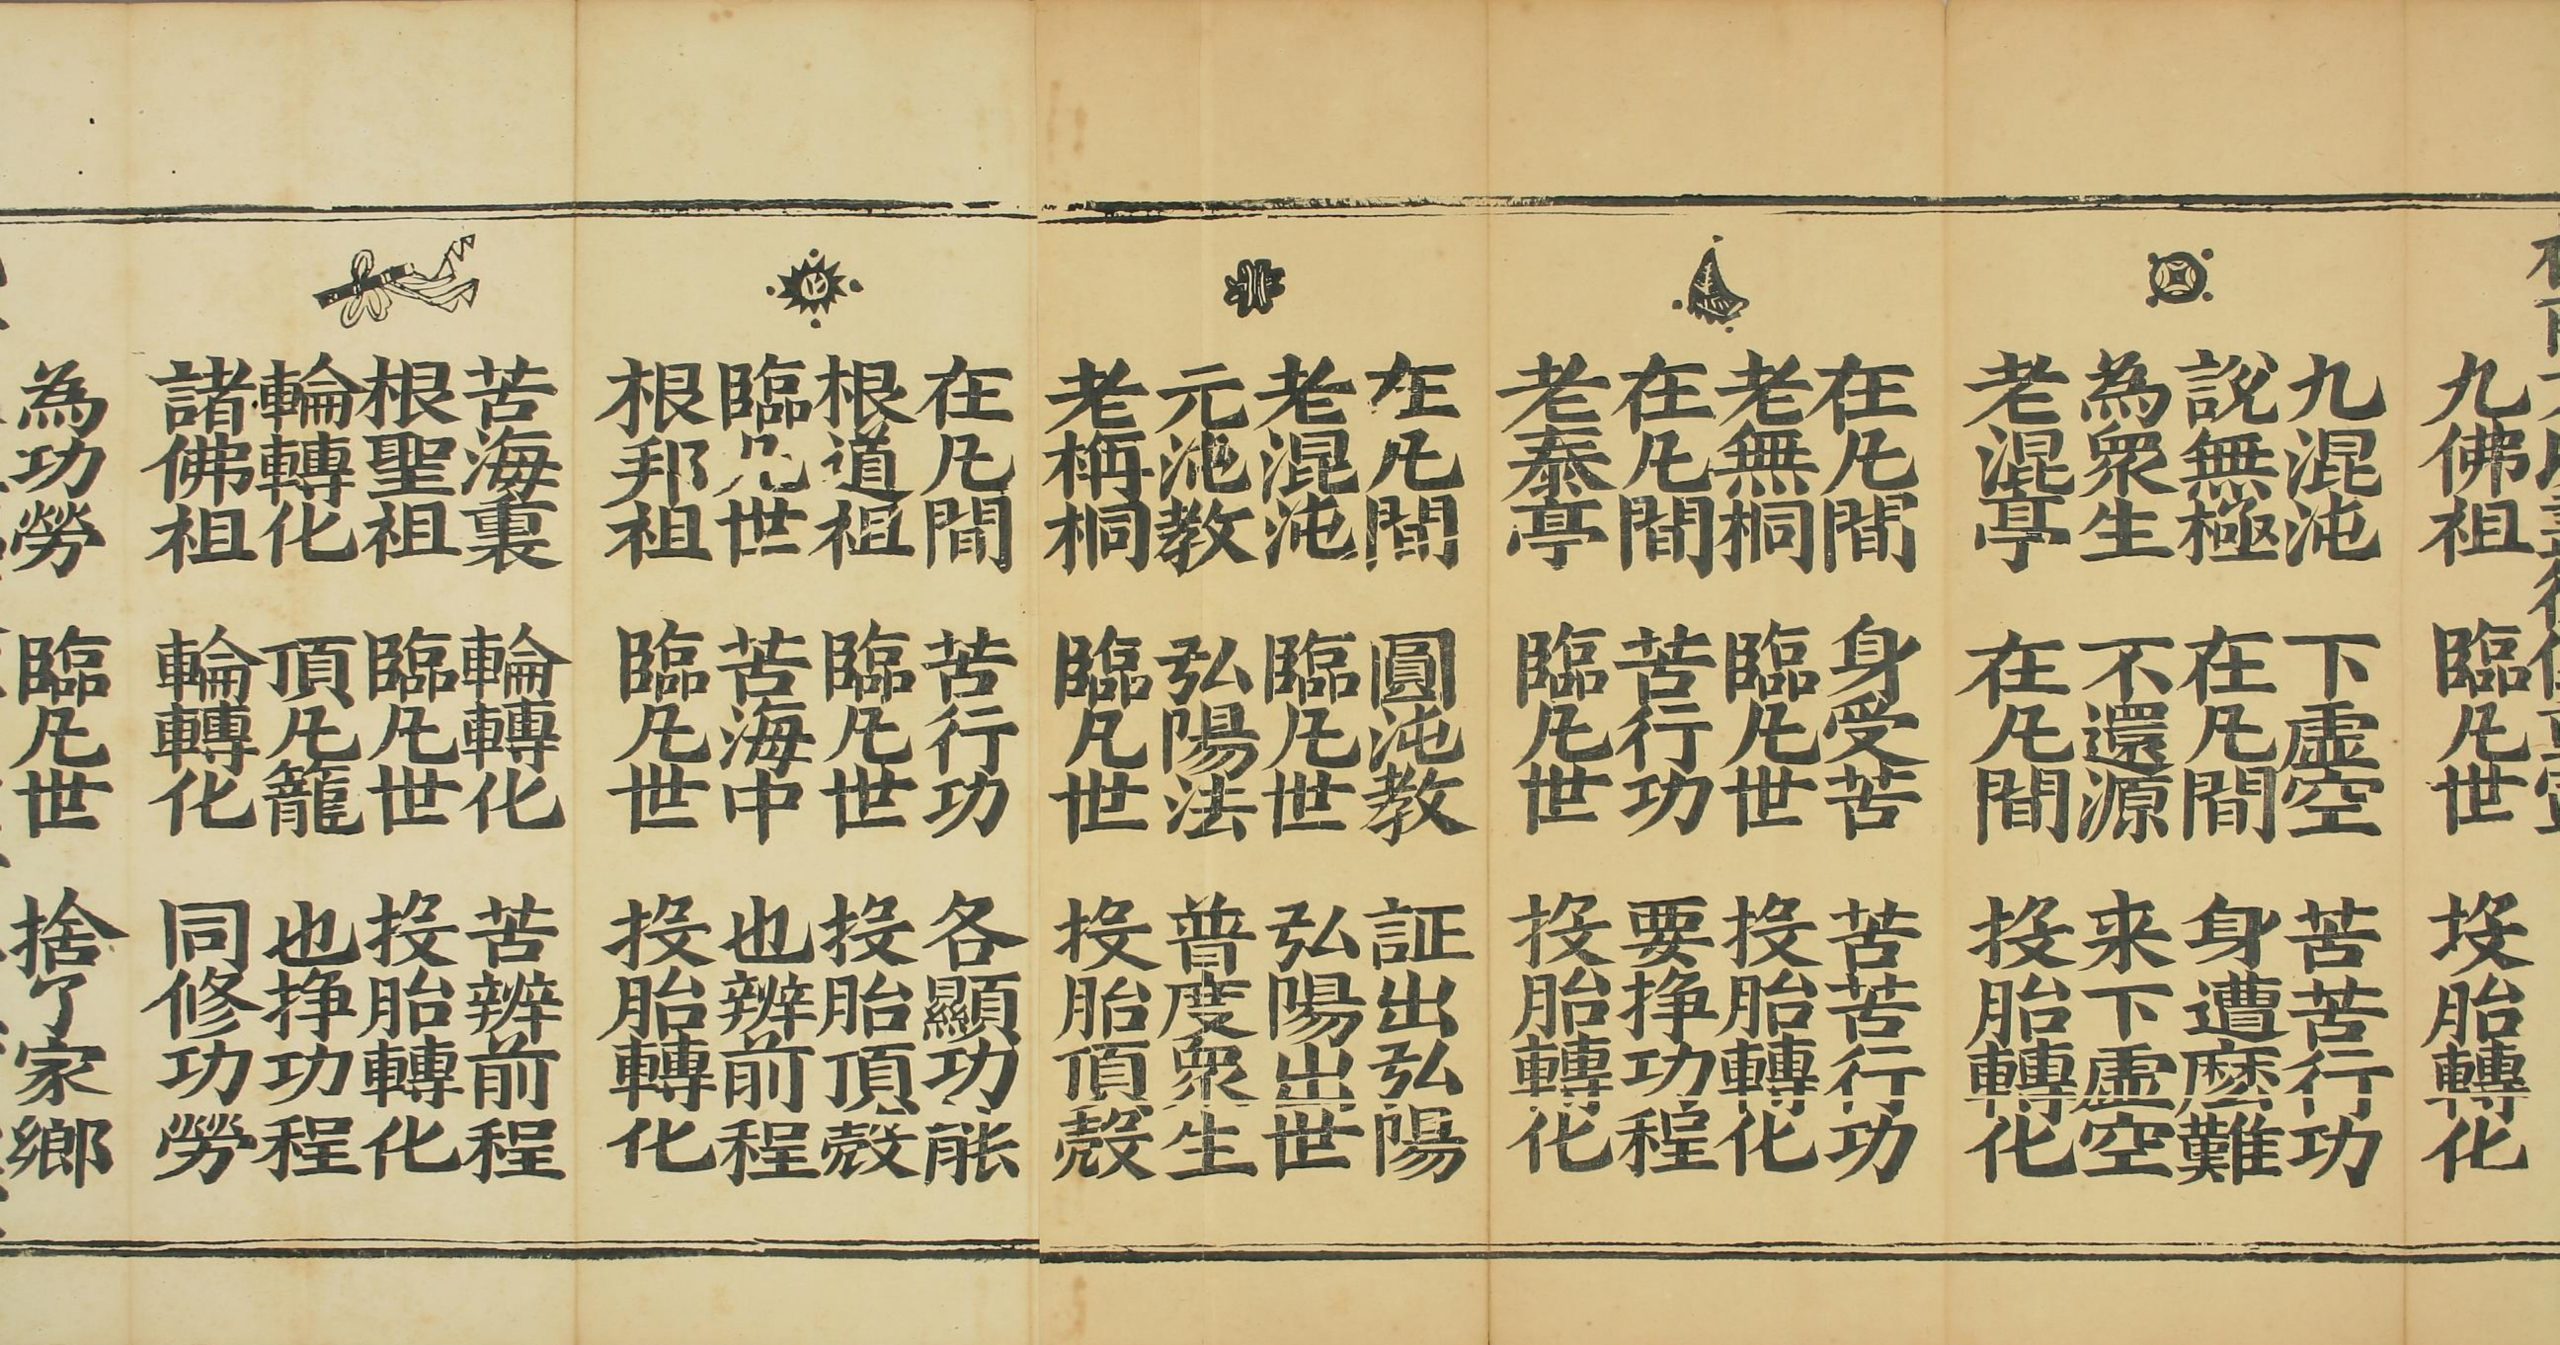 九佛祖 臨凡世 投胎轉化
九混沌 下虛空 苦苦行功
說無極 在凡間 身遭麽難
為衆生 不還源 来下虛空
老混亭 在凡間 投胎轉化
在凡間 身受苦 苦苦行功
老無桐 臨凡世 投胎轉化
在凡間 苦行功 要挣功程
老泰亭 臨凡世 投胎轉化
在凡間 圓沌教 証出弘陽
老混沌 臨凡世 弘陽出世
元沌教 弘陽法 普度衆生
老梢桐 臨凡世 投胎頂殼
在凡間 苦行功 各顯功能
根道祖 臨凡世 投胎頂殼
臨凡世 苦海中 也辨前程
根邦祖 臨凡世 投胎轉化
苦海裏 輪轉化 苦辨前程
根聖祖 臨凡世 投胎轉化
輪轉化 頂凡籠 也挣功程
諸佛祖 輪轉化 同修功勞
為功勞 臨凡世 捨了家鄉